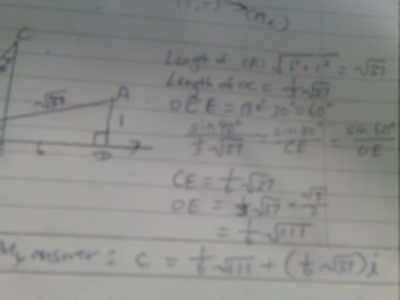 C
Length of OA = √(6² + 1²) = √37
Length of OC = 1/3 √37
√37
A
OĈE = 180° 30° = 60°
1
sin 90° / 1/3 √37 = sin 30° / CE = sin 60° / OE
6
D
CE = 1/6 √37
OE = 1/3 √37 × √3/2
= 1/6 √111
My answer: C = 1/6 √111 + (1/6 √37) i